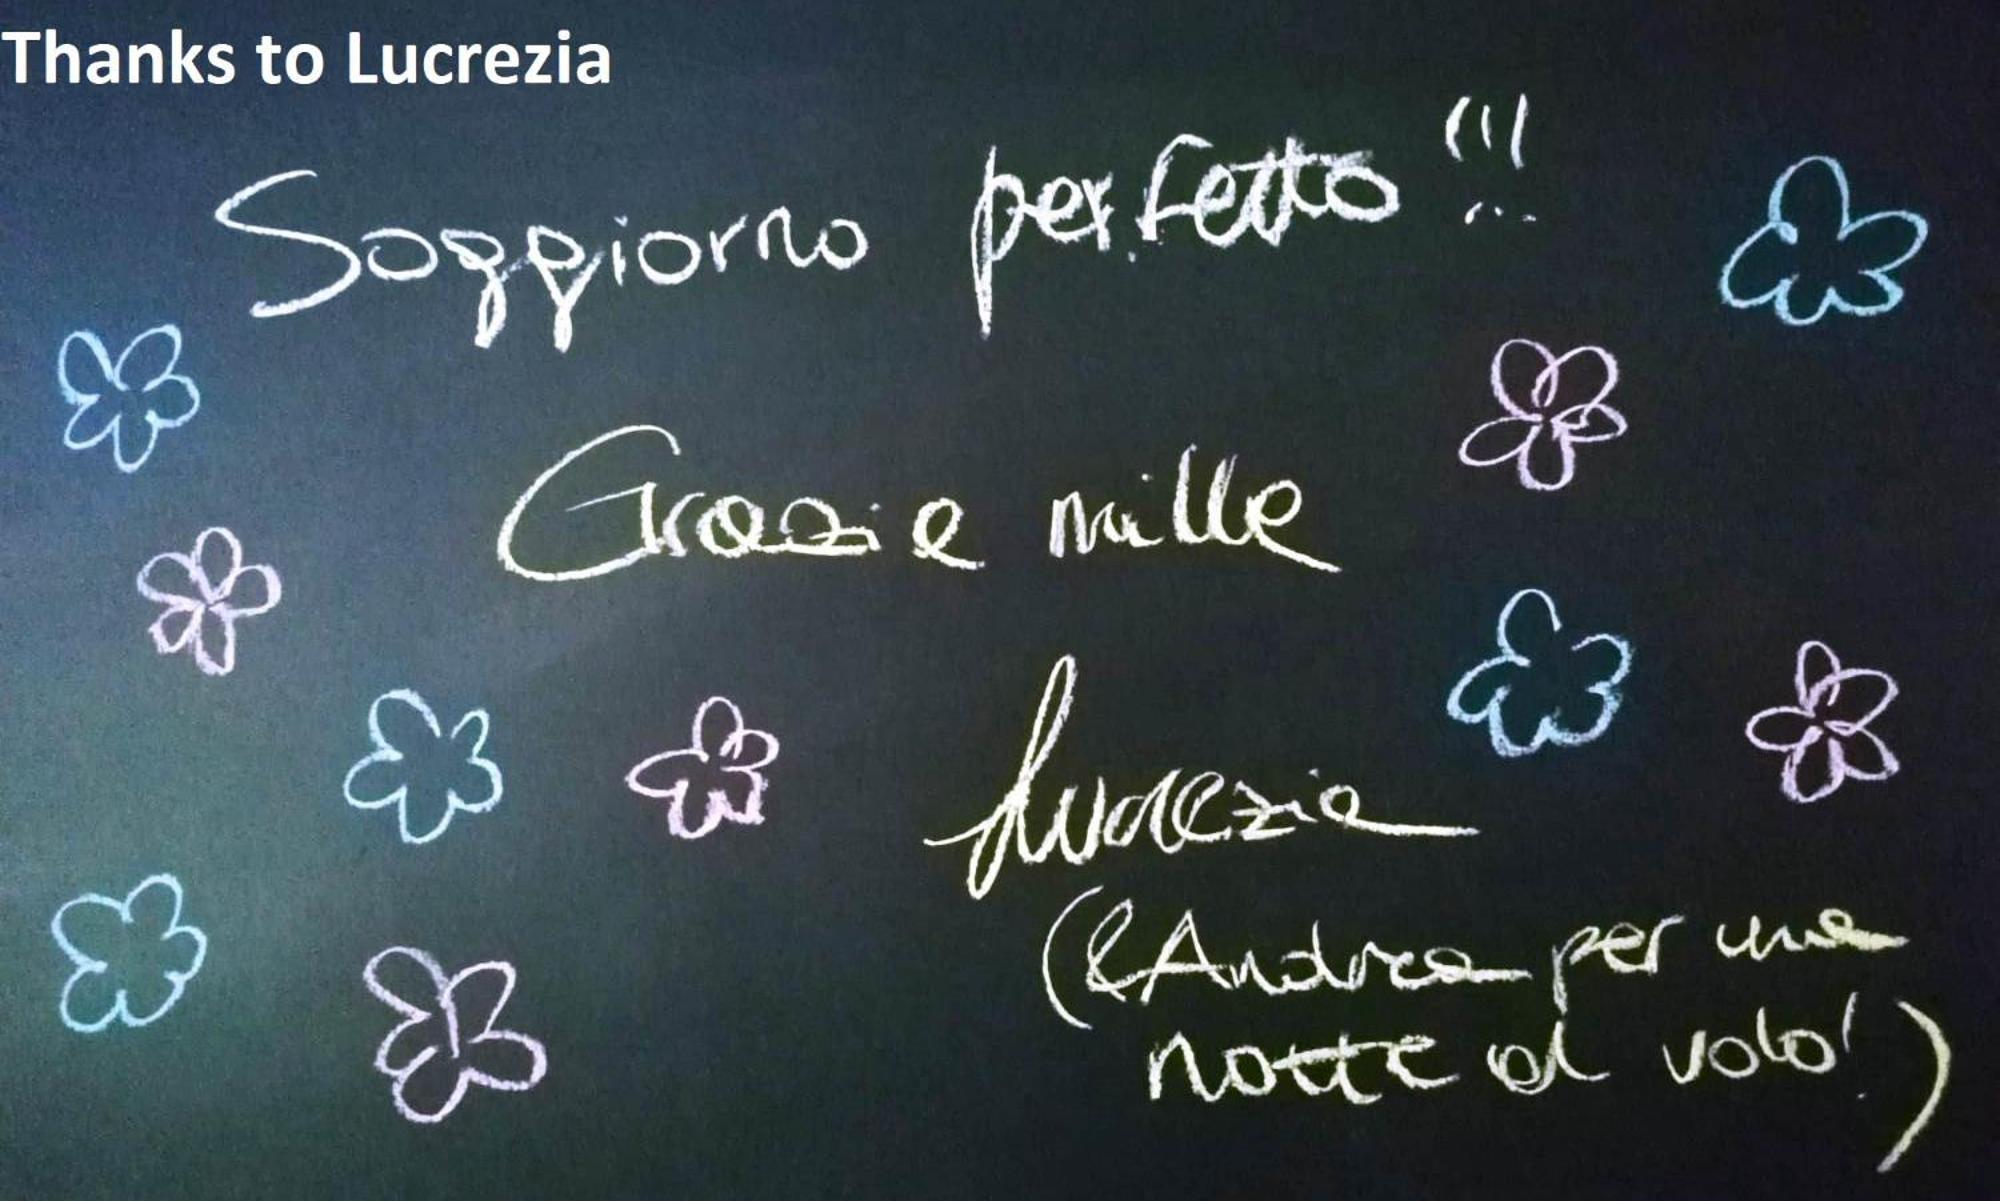 Thanks to Lucrezia
Soggiorno perfetto!!!
Grazie mille
Lucrezia
(& Andrea per una
notte al volo!)